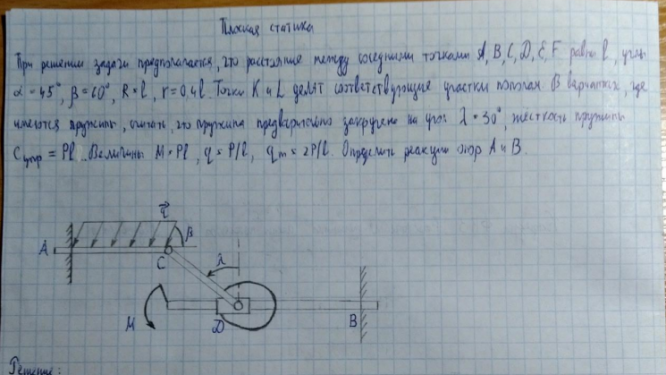 Плоская статика
При решении задачи предполагается, что расстояние между соседними точками A, B, C, D, E, F равно l, углы
α = 45°, β = 60°, R = l, r = 0,4l. Точки K и L делят соответствующие участки пополам. В вариантах, где
имеются пружины, считать, что пружина предварительно закручена на угол λ = 30°, жесткость пружины
Cупр = Pl. Величины M = Pl, q = P/l, qm = 2P/l. Определить реакции опор A и B.
q
A
β
C
λ
M
D
B
Решение: